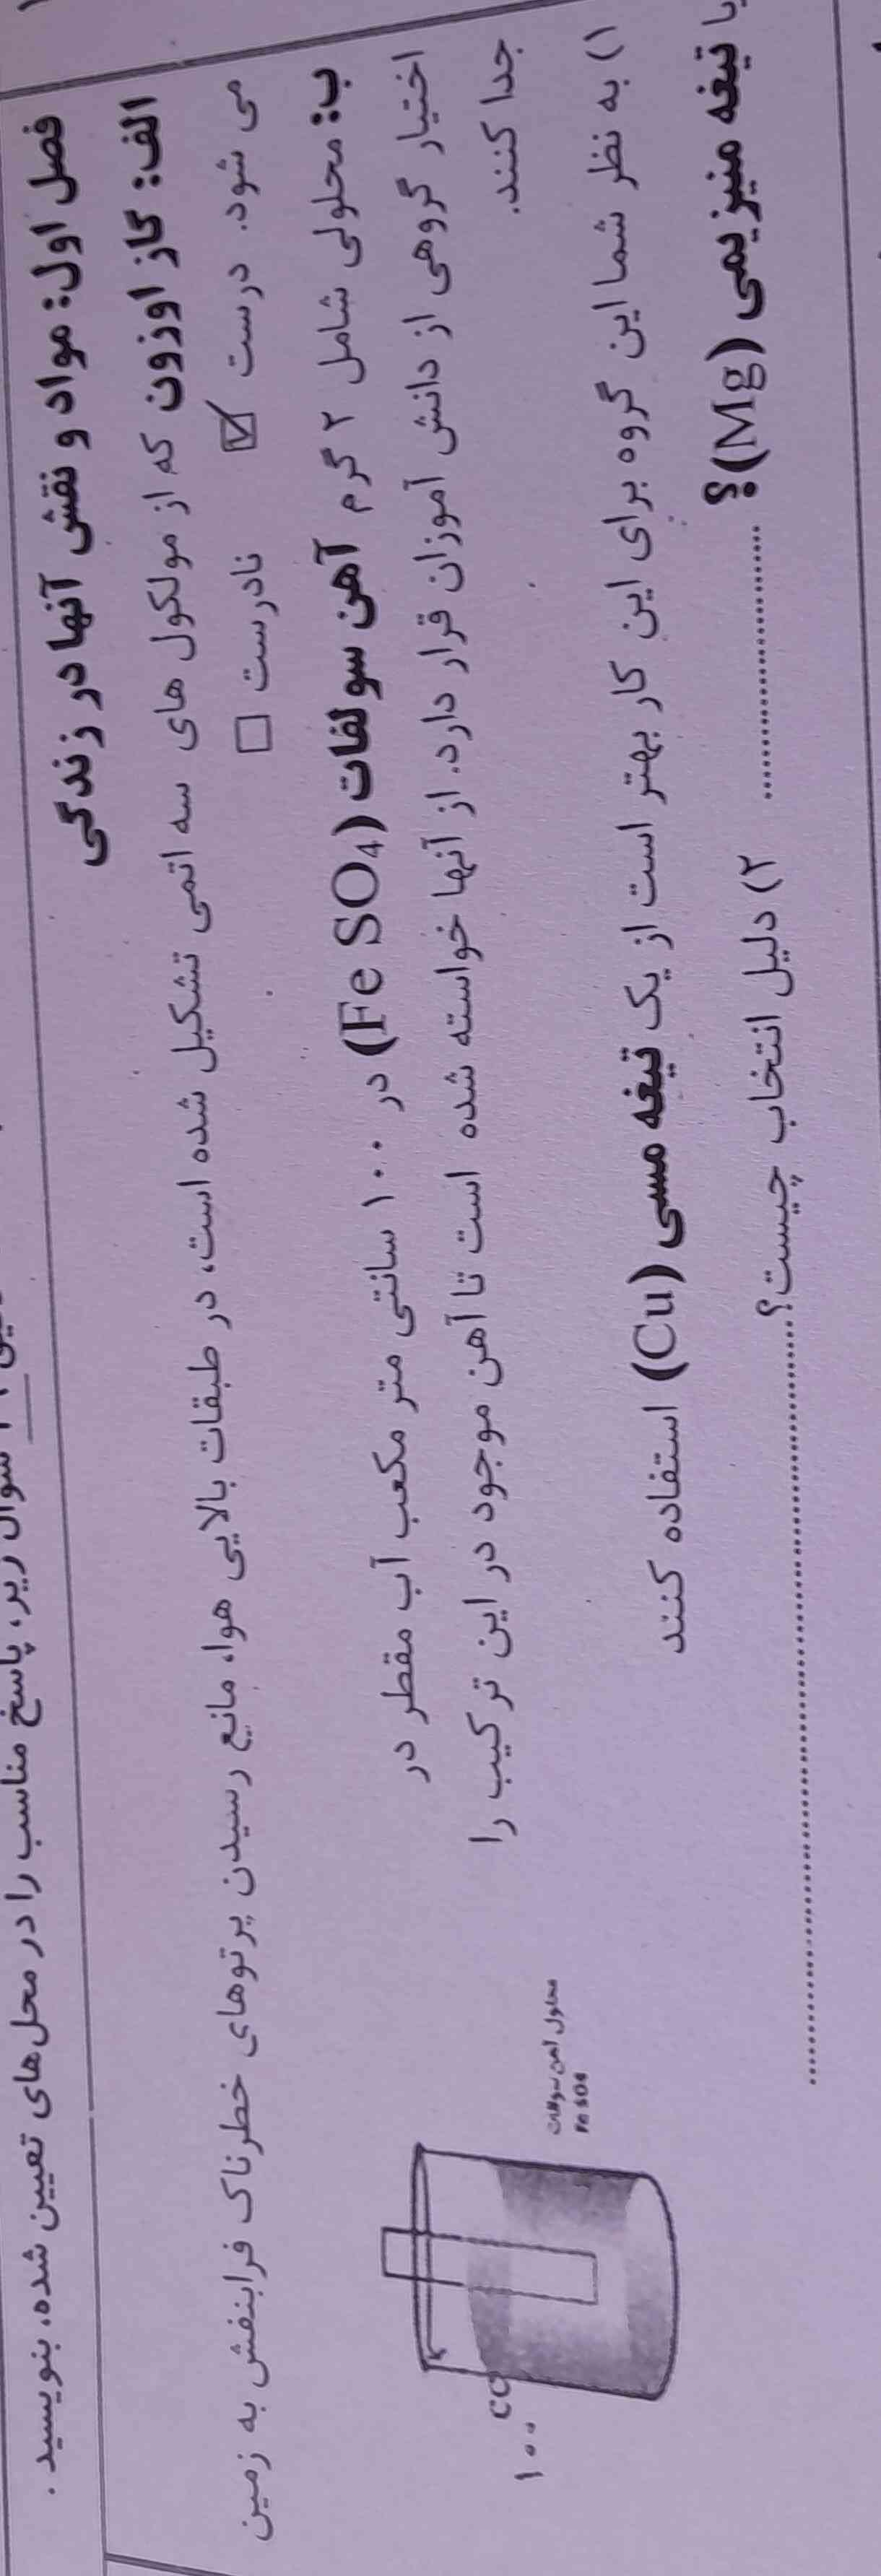 سوال زیر، پاسخ مناسب را در محل‌های تعیین شده، بنویسید.
فصل اول: مواد و نقش آنها در زندگی
الف: گاز اوزون که از مولکول های سه اتمی تشکیل شده است، در طبقات بالایی هوا، مانع رسیدن پرتوهای خطرناک فرابنفش به زمین
می شود. درست ☑ نادرست □
ب: محلولی شامل ۲ گرم آهن سولفات (Fe SO₄) در ۱۰۰ سانتی متر مکعب آب مقطر در
اختیار گروهی از دانش آموزان قرار دارد. از آنها خواسته شده است تا آهن موجود در این ترکیب را
جدا کنند.
۱) به نظر شما این گروه برای این کار بهتر است از یک تیغه مسی (Cu) استفاده کنند
یا تیغه منیزیمی (Mg)؟ .................... ۲) دلیل انتخاب چیست؟ ............................................................
۱۰۰ cc
محلول آهن سولفات
Fe SO4